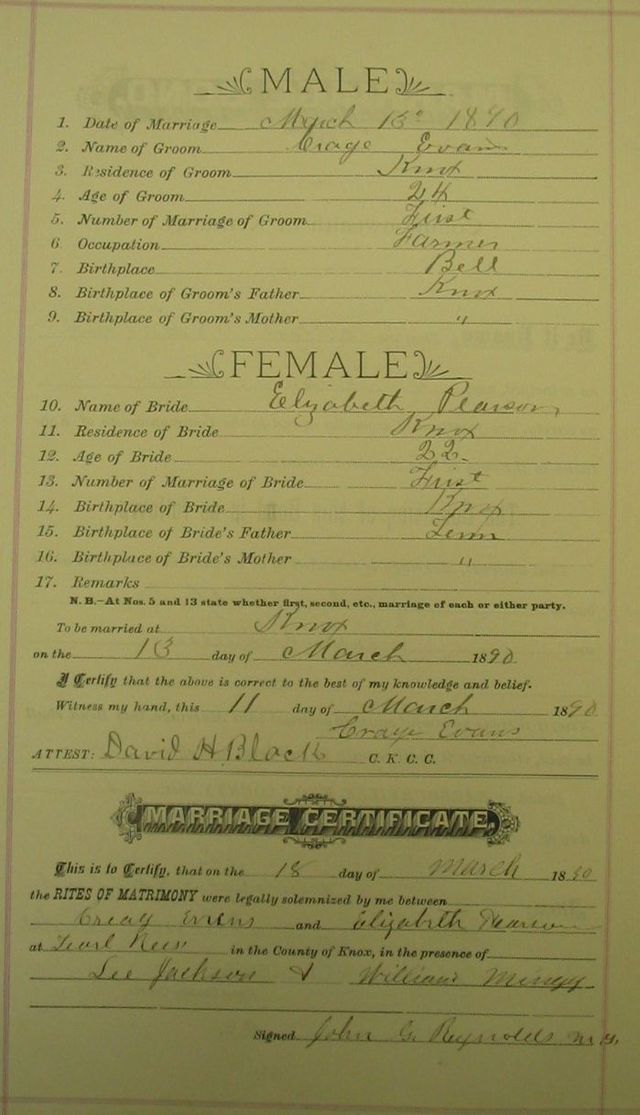 MALE
1. Date of Marriage March 13 1890
2. Name of Groom Crage Evans
3. Residence of Groom Knox
4. Age of Groom 24
5. Number of Marriage of Groom First
6 Occupation Farmer
7. Birthplace Bell
8. Birthplace of Groom's Father Knox
9. Birthplace of Groom's Mother "
FEMALE
10. Name of Bride Elizabeth Pearson
11. Residence of Bride Knox
12. Age of Bride 22
13. Number of Marriage of Bride First
14. Birthplace of Bride Knox
15. Birthplace of Bride's Father Tenn
16. Birthplace of Bride's Mother "
17. Remarks
N. B.—At Nos. 5 and 13 state whether first, second, etc., marriage of each or either party.
To be married at Knox
on the 13 day of March 1890
I Certify that the above is correct to the best of my knowledge and belief.
Witness my hand, this 11 day of March 1890
Crage Evans
ATTEST: David H Black C. K. C. C.
MARRIAGE CERTIFICATE.
This is to Certify, that on the 18 day of March 1890
the RITES OF MATRIMONY were legally solemnized by me between
Creag Evens and Elizabeth Pearson
at in the County of Knox, in the presence of
Lee Jackson & William
Signed John G. Reynolds